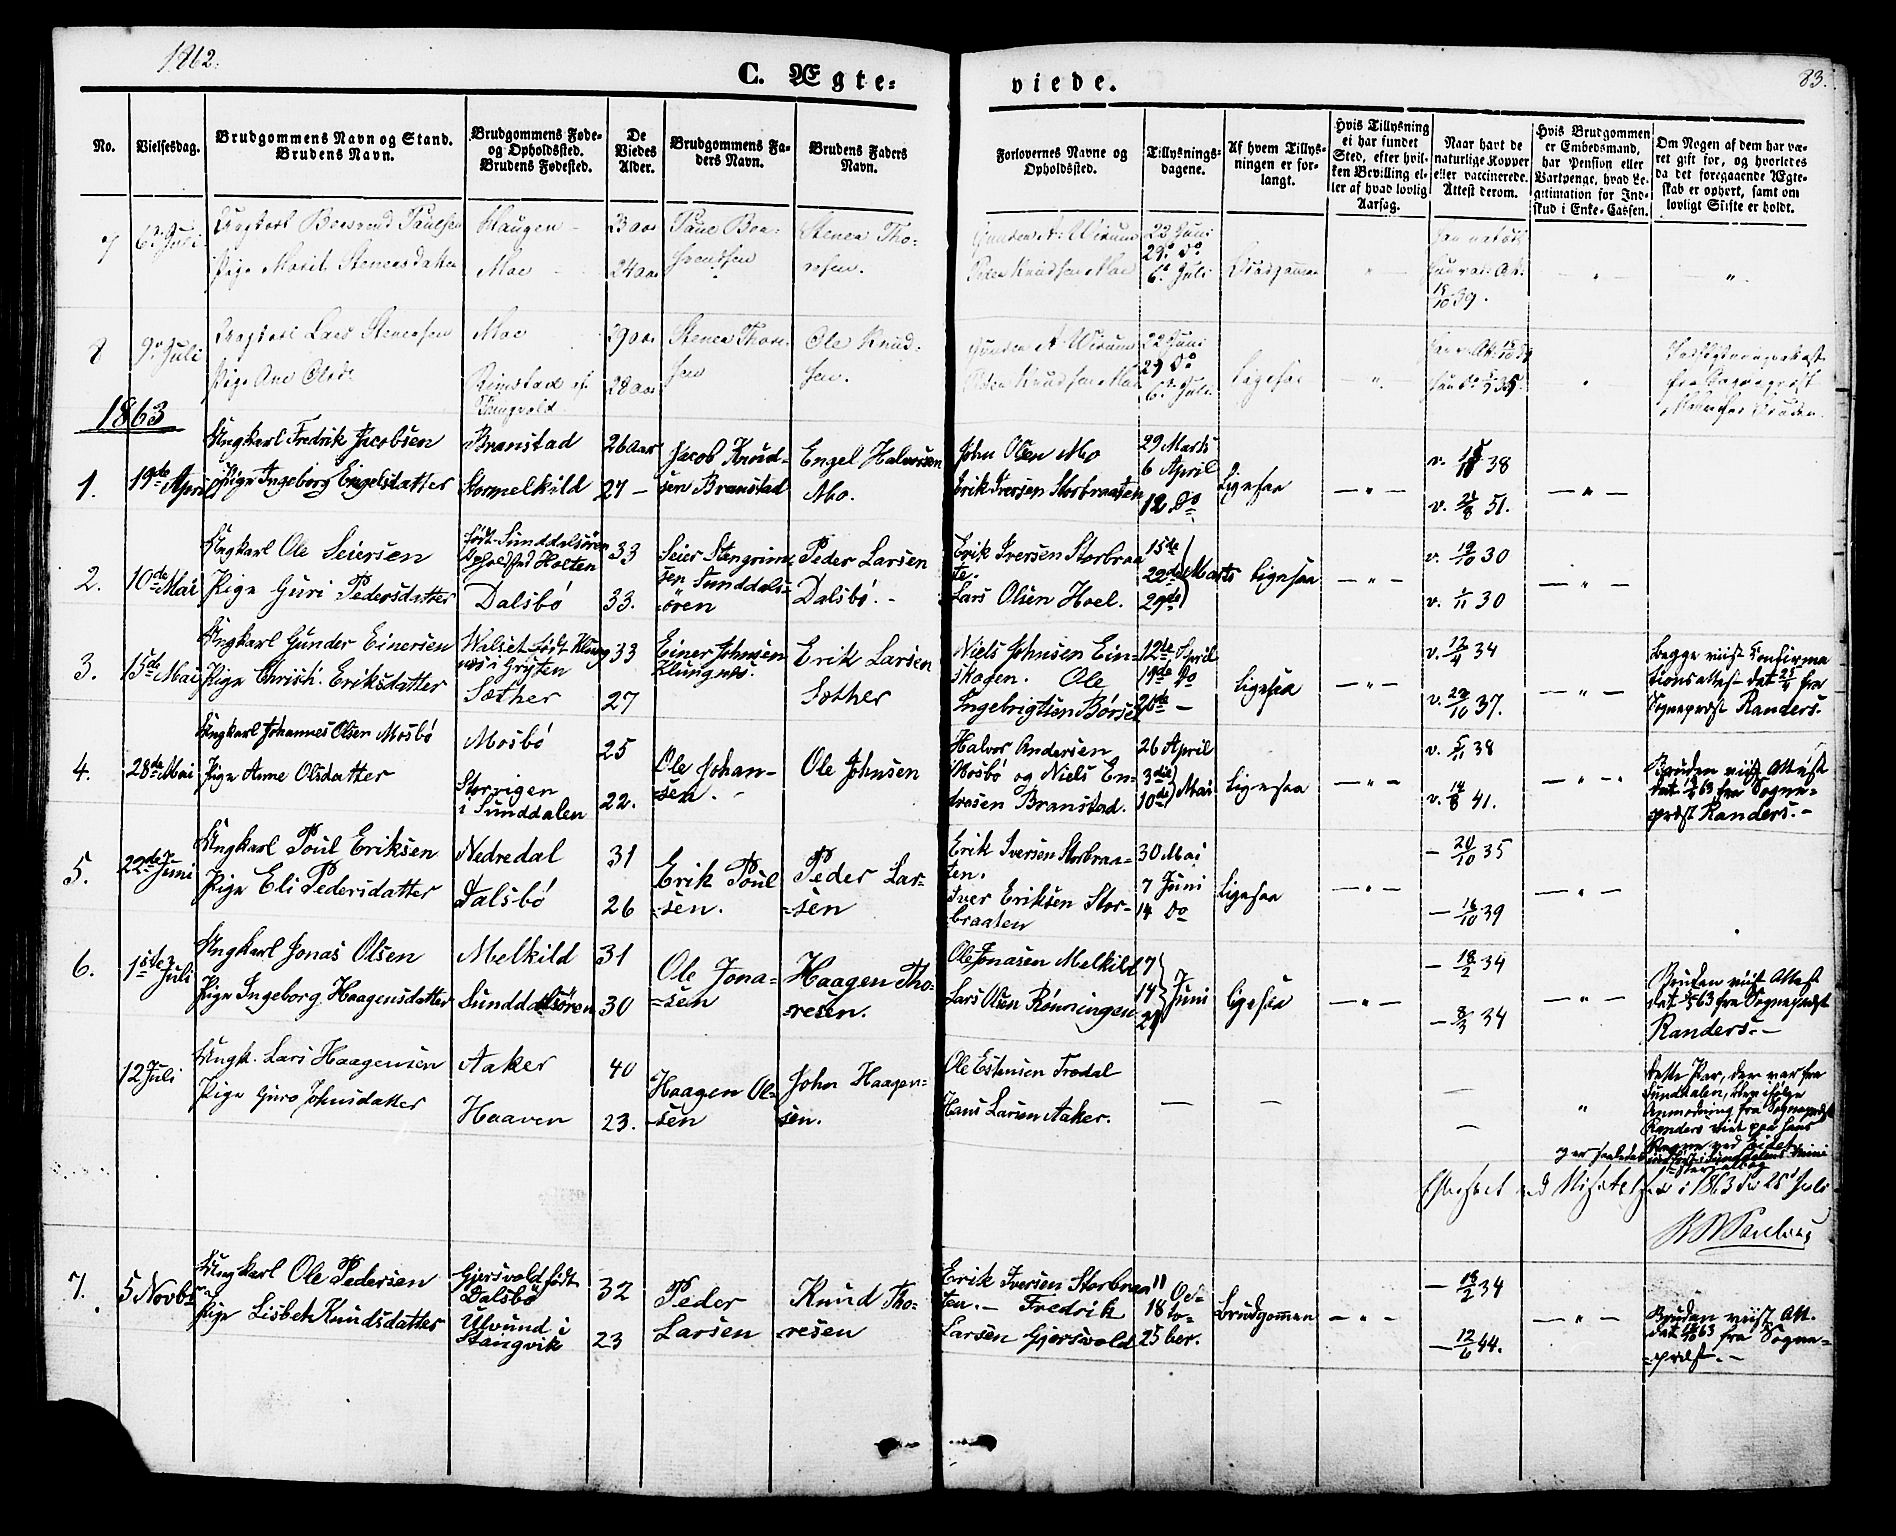 1862.
C. Ægte=
viede.
83.
No.
Vielsesdag.
Brudgommens Navn og Stand.
Brudens Navn.
Brudgommens Føde-
og Opholdssted.
Brudens Fødested.
De
Viedes
Alder.
Brudgommens Fa-
ders Navn.
Brudens Faders
Navn.
Forlovernes Navne og
Opholdssted.
Tillysnings-
dagene.
Af hvem Tillys-
ningen er for-
langt.
Hvis Tillysning
ei har fundet
Sted, efter hvil-
ken Bevilling el-
ler af hvad lovlig
Aarsag.
Naar havt de
naturlige Kopper
eller vaccinerede.
Attest derom.
Hvis Brudgommen
er Embedsmand,
har Pension eller
Vartpenge, hvad Le-
gitimation for Ind-
skud i Enke-Cassen.
Om Nogen af dem har væ-
ret gift før, og hvorledes
da det foregaaende Ægte-
skab er ophørt, samt om
lovligt Skifte er holdt.
7
6 Juli
Pige Marit Stenersdatter
Haugen
Moe
23 aar
24 aar
Stener Tho-
resen.
Peder Knudsen Moe
22 Juni
29 do
6 Juli
Brudgommen
8
9 Juli
Lars Stenersen
Pige Ane Olsdr
Moe
29 aar
28 aar
Stener Thore-
sen
Ole Knud-
sen.
22 Juni
29 Do
6 Juli
Ligesaa
1863
1.
19de April
Ungkarl Fredrik Jacobsen
Pige Ingeborg Engelsdatter
Branstad
Stormelkild
26 aar
27 -
Jacob Knud-
sen Branstad
Engel Halvorsen
Mo.
John Olsen Mo
Erik Iversen Storbraaten
29 Marts
6 April
12 Do
Ligesaa
v. 38
v. 51.
2.
10de Mai
Ungkarl Ole Seiersen
Pige Guri Pedersdatter
født Sunddalsøren
Opholdsted Holten
Dalsbó
33
33.
Seier Stengrim-
sen Sunddals-
øren
Peder Larsen
Dalsbó. -
Erik Iversen Storbraa
te.
Lars Olsen Hoel.
15de
22de
29de
Marts
Ligesaa
v. 19/10 30
v. 1/11 30
3.
15de Mai
Ungkarl Gunder Einersen
Pige Christi. Eriksdatter
Walset født Klung
næs i Grytten
Sæther
33
27
Einer Johnsen
Klungnæs.
Erik Larsen
Sæther
Niels Johnsen Ein-
skagen. Ole
Ingebrigtsen Børset
12te April
19de Do
26de -
Ligesaa
v. 12/4 34
v. 37.
Begge viist Confirma
tionsattest dat. fra
Sognepræst Randers.
4.
28de Mai
Ungkarl Johannes Olsen Mosbó
Pige Anne Olsdatter
Mosbó
Storvigen
i Sunddalen
25
22.
Ole Johan-
sen. -
Ole Johnsen
Halvor Andersen
Mosbó og Niels En-
dresen Branstad.
26 April
3die
10de
Mai
Ligesaa
v. 38
v. 14/8 41.
Bruden viist Attest
dat. 63 fra Sogne-
præst Randers. -
5.
22de Juni
Ungkarl Poul Eriksen
Pige Eli Pedersdatter
Nedredal
Dalsbó
31
26
Erik Poul
=sen.
Peder Lar-
=sen
Erik Iversen Storbraa-
ten.
Iver Eriksen Stor-
braaten
30 Mai
7 Juni
14 Do
Ligesaa
- 20/10 35
- 16/10 39
6.
1ste Juli
Ungkarl Jonas Olsen
Pige Ingeborg Haagensdatter
Melkild
Sunddalsøren
31
30
Ole Jona-
=sen
Haagen Tho-
=resen.
Ole Jonasen Melkild
Lars Olsen Rönningen
7
14
21
Juni
Ligesaa
- 18/2 34
- 8/3 34
Bruden viist Attest
dat. 63 fra Sognepræst
Randers. -
12 Juli
Ungk. Lars Haagensen
Pige Guro Johnsdatter
Aaker
Haaven
40
23.
Haagen Ol-
sen
John Haagen-
sen.
Ole Estensen Trædal
Hans Larsen Aaker.
Dette Par, der var fra
Sunddalen, blev ifølge
Anmodning fra Sognepræst
Randers viet paa hans
Vegne
og er saaledes indført i Sunddalens Mini
sterialbog
i 1863 d. 25 Juli
7.
5 Novbr
Ungkarl Ole Pedersen
Pige Lisbeth Knudsdatter
Gjersvold født
Dalsbó
Ulvund i
Stangvik
32
23
Peder
Larsen
Knud Tho-
resen
Erik Iversen Storbraa
ten. - Fredrik
Larsen Gjersvold
11 Oc-
18 to-
25 ber.
Brudgommen
- 18/2 34
- 12/6 44.
Bruden viist Att.
dat. 63 fra Sogne-
=præst. -